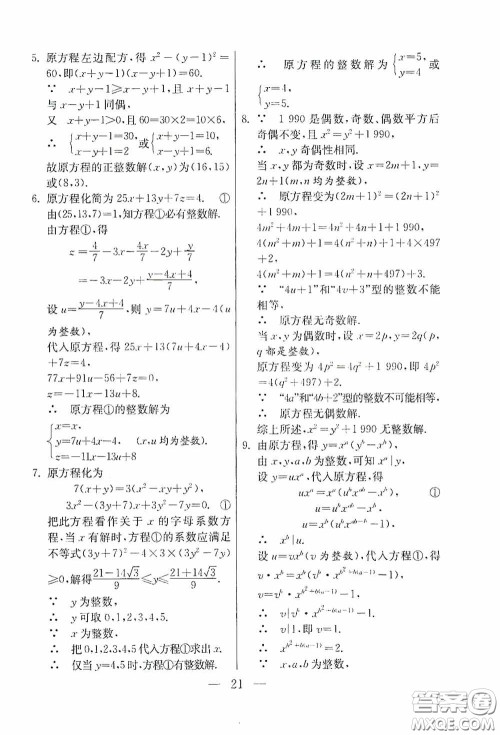 5. 原方程左边配方，得 x²−(y−1)²=
60，即(x+y−1)(x−y+1)=60.
∵ x+y−1≥x−y+1，且 x+y−1
与 x−y+1 同偶，
又 x+y−1>0，且 60=30×2=10×6，
∴ {x+y−1=30, x−y+1=2 或{x+y−1=10, x−y+1=6.
故原方程的正整数解(x,y)为(16,15)
或(8,3).
6. 原方程化简为 25x+13y+7z=4. ①
由(25,13,7)=1，知方程①必有整数解.
由方程①，得
z=4/7−3x−4x/7−2y+y/7
=−3x−2y+(y−4x+4)/7，
设 u=(y−4x+4)/7，则 y=7u+4x−4(u
为整数)，
代入原方程，得 25x+13(7u+4x−4)
+7z=4，
77x+91u−56+7z=0，
z=−11x−13u+8.
∴ 原方程①的整数解为
{x=x,
y=7u+4x−4, (x,u 均为整数).
z=−11x−13u+8
7. 原方程化为
7(x+y)=3(x²−xy+y²)，
3x²−(3y+7)x+3y²−7y=0 ①
把此方程看作关于 x 的字母系数方
程，当 x 有解时，方程①的系数应满足
不等式(3y+7)²−4×3×(3y²−7y)
≥0，解得(21−14√3)/9≤y≤(21+14√3)/9.
∵ y 为整数，
∴ y 可取 0,1,2,3,4,5.
∵ x 为整数，
∴ 把 0,1,2,3,4,5 代入方程①求出 x.
∴ 仅当 y=4,5 时，方程①有整数解.
∴ 原方程的整数解为{x=5, y=4 或
{x=4,
y=5.
8. ∵ 1 990 是偶数，奇数、偶数平方后
奇偶不变，且 x²=y²+1 990，
∴ x,y 奇偶性相同.
当 x,y 都为奇数时，设 x=2m+1，y=
2n+1(m,n 均为整数)，
∴ 原方程变为(2m+1)²=(2n+1)²
+1 990，
4m²+4m+1=4n²+4n+1+1 990，
4(m²+m)+1=4(n²+n)+1+4×497
+2，
4(m²+m)+1=4(n²+n+497)+3.
∵ “4u+1”和“4v+3”型的整数不可能
相等，
∴ 原方程无奇数解.
当 x,y 为偶数时，设 x=2p，y=2q(p,
q 都是整数)，
原方程变为 4p²=4q²+1 990，即 4p²
=4(q²+497)+2.
∵ “4a”和“4b+2”型的整数不可能相等，
∴ 原方程无偶数解.
综上所述，x²=y²+1 990 无整数解.
9. 由原方程，得 y=xᵃ(yᵇ−xᵇ)，
由 x,y,a,b 为整数，可知 xᵃ|y.
设 y=uxᵃ，代入原方程，得
uxᵃ=xᵃ(uᵇxᵃᵇ−xᵇ)，
u=uᵇxᵃᵇ−xᵇ ①
u=xᵇ(uᵇxᵇ⁽ᵃ⁻¹⁾−1).
∴ xᵇ|u.
设 u=vxᵇ(v 为整数)，代入方程①，得
v·xᵇ=xᵇ(vᵇ·x^(b²+b(a−1))−1)，
v=vᵇ·x^(b²+b(a−1))−1.
∴ v|vᵇ·x^(b²+b(a−1)).
∴ v|1，即 v=1.
∴ x^(b²+b(a−1))=2.
∵ x,a,b 为整数，
— 21 —